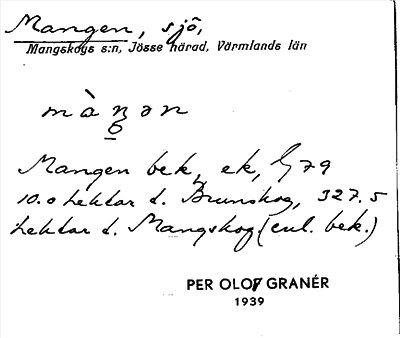 Mangen, sjö,
Mangskogs s:n, Jösse härad, Värmlands län
màŋən
6
Mangen bek, ek, G 79
10.0 hektar t. Brunskog, 327.5
hektar t. Mangskog (enl. bek.)
PER OLOF GRANÉR
1939